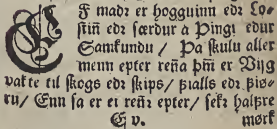 EF madr er hogguinn edr Lo-
stiñ edr særdur a Þingi edur
Samkundu / Þa skulu aller
menn epter reña þm̃ er Vijg
vakte til skogs edr skips / fialls edr Fio-
ru / Enn sa er ei reñr epter / sekr halfre
E v. mørk